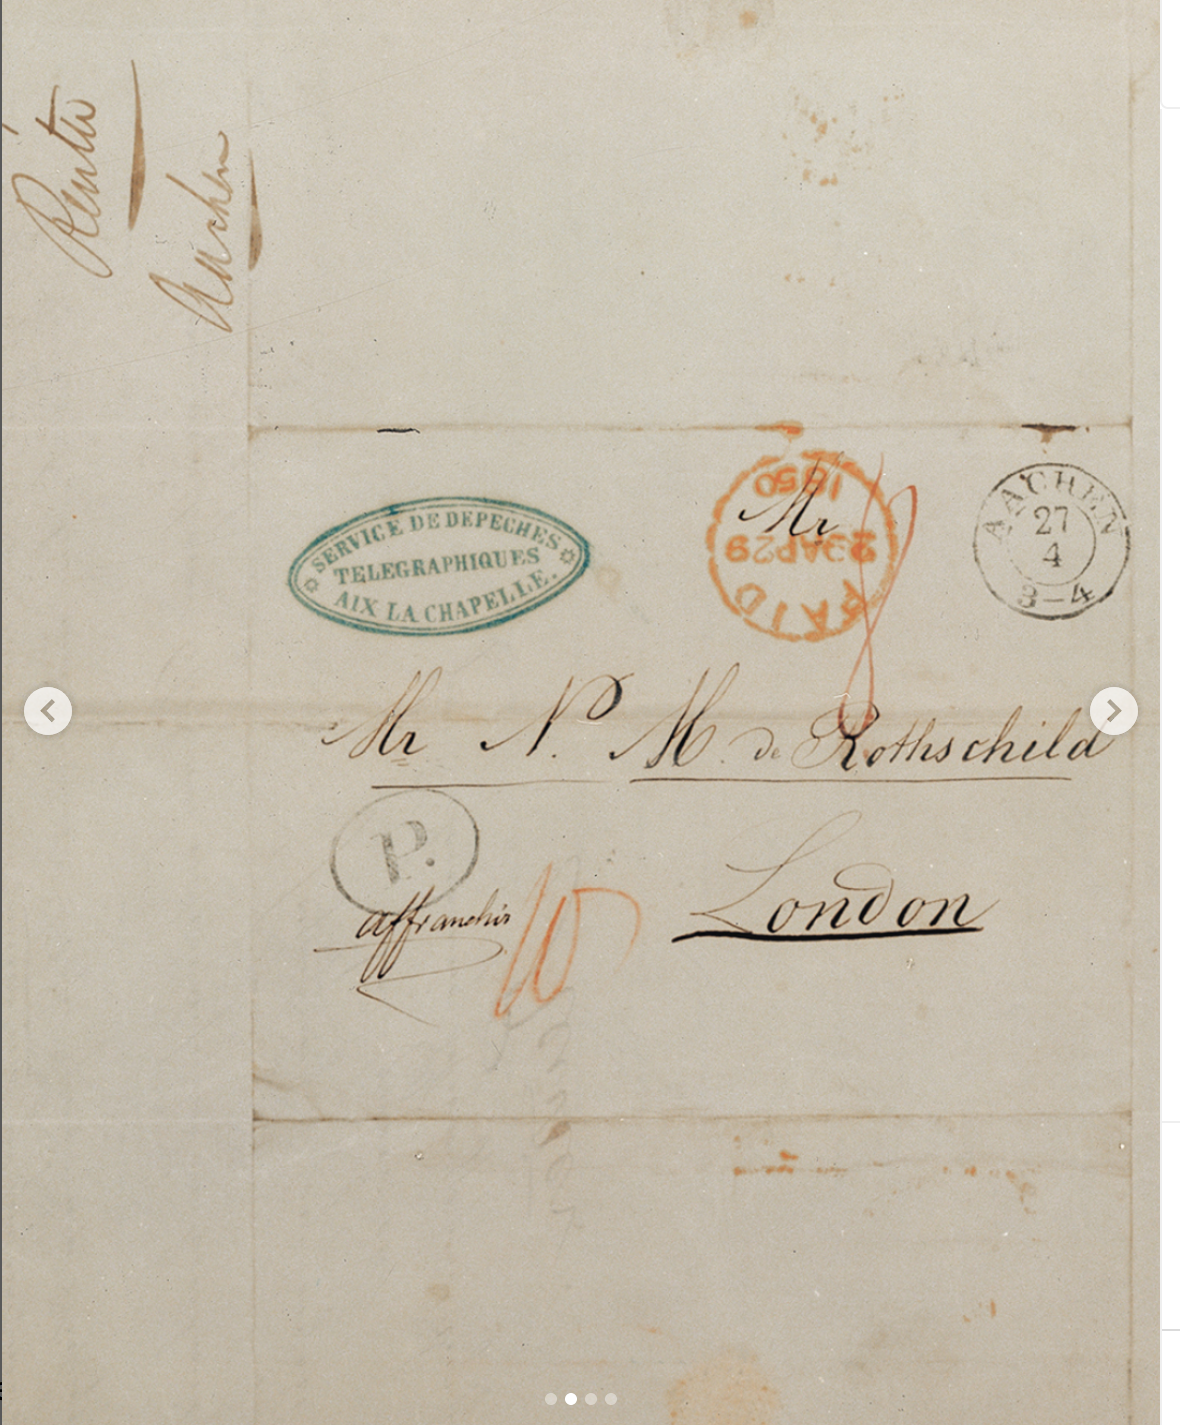 Reuter
Aachen
SERVICE DE DEPECHES
TELEGRAPHIQUES
AIX LA CHAPELLE.
1850
29AP29
PAID
Mr
AACHEN
27
4
3–4
Mr N. M. de Rothschild
P.
affranchir
London